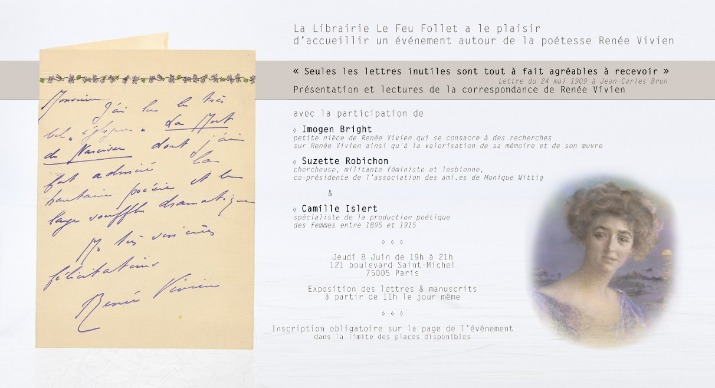 La Librairie Le Feu Follet a le plaisir
d'accueillir un événement autour de la poétesse Renée Vivien
« Seules les lettres inutiles sont tout à fait agréables à recevoir »
Lettre du 24 mai 1909 à Jean-Carles Brun
Présentation et lectures de la correspondance de Renée Vivien
avec la participation de
◊ Imogen Bright
petite nièce de Renée Vivien qui se consacre à des recherches
sur Renée Vivien ainsi qu'à la valorisation de sa mémoire et de son œuvre
◊ Suzette Robichon
chercheuse, militante féministe et lesbienne,
co-présidente de l'association des ami.es de Monique Wittig
&
◊ Camille Islert
spécialiste de la production poétique
des femmes entre 1895 et 1915
◊ ◊ ◊
Jeudi 8 Juin de 19h à 21h
121 boulevard Saint-Michel
75005 Paris
Exposition des lettres & manuscrits
à partir de 11h le jour même
◊ ◊ ◊
Inscription obligatoire sur la page de l'événement
dans la limite des places disponibles
Monsieur
J'ai lu le très
bel
La Mort
de Narcisse dont j'ai
fort admiré la
hautaine poésie et le
large souffle dramatique
Mes très sincères
félicitations
Renée Vivien